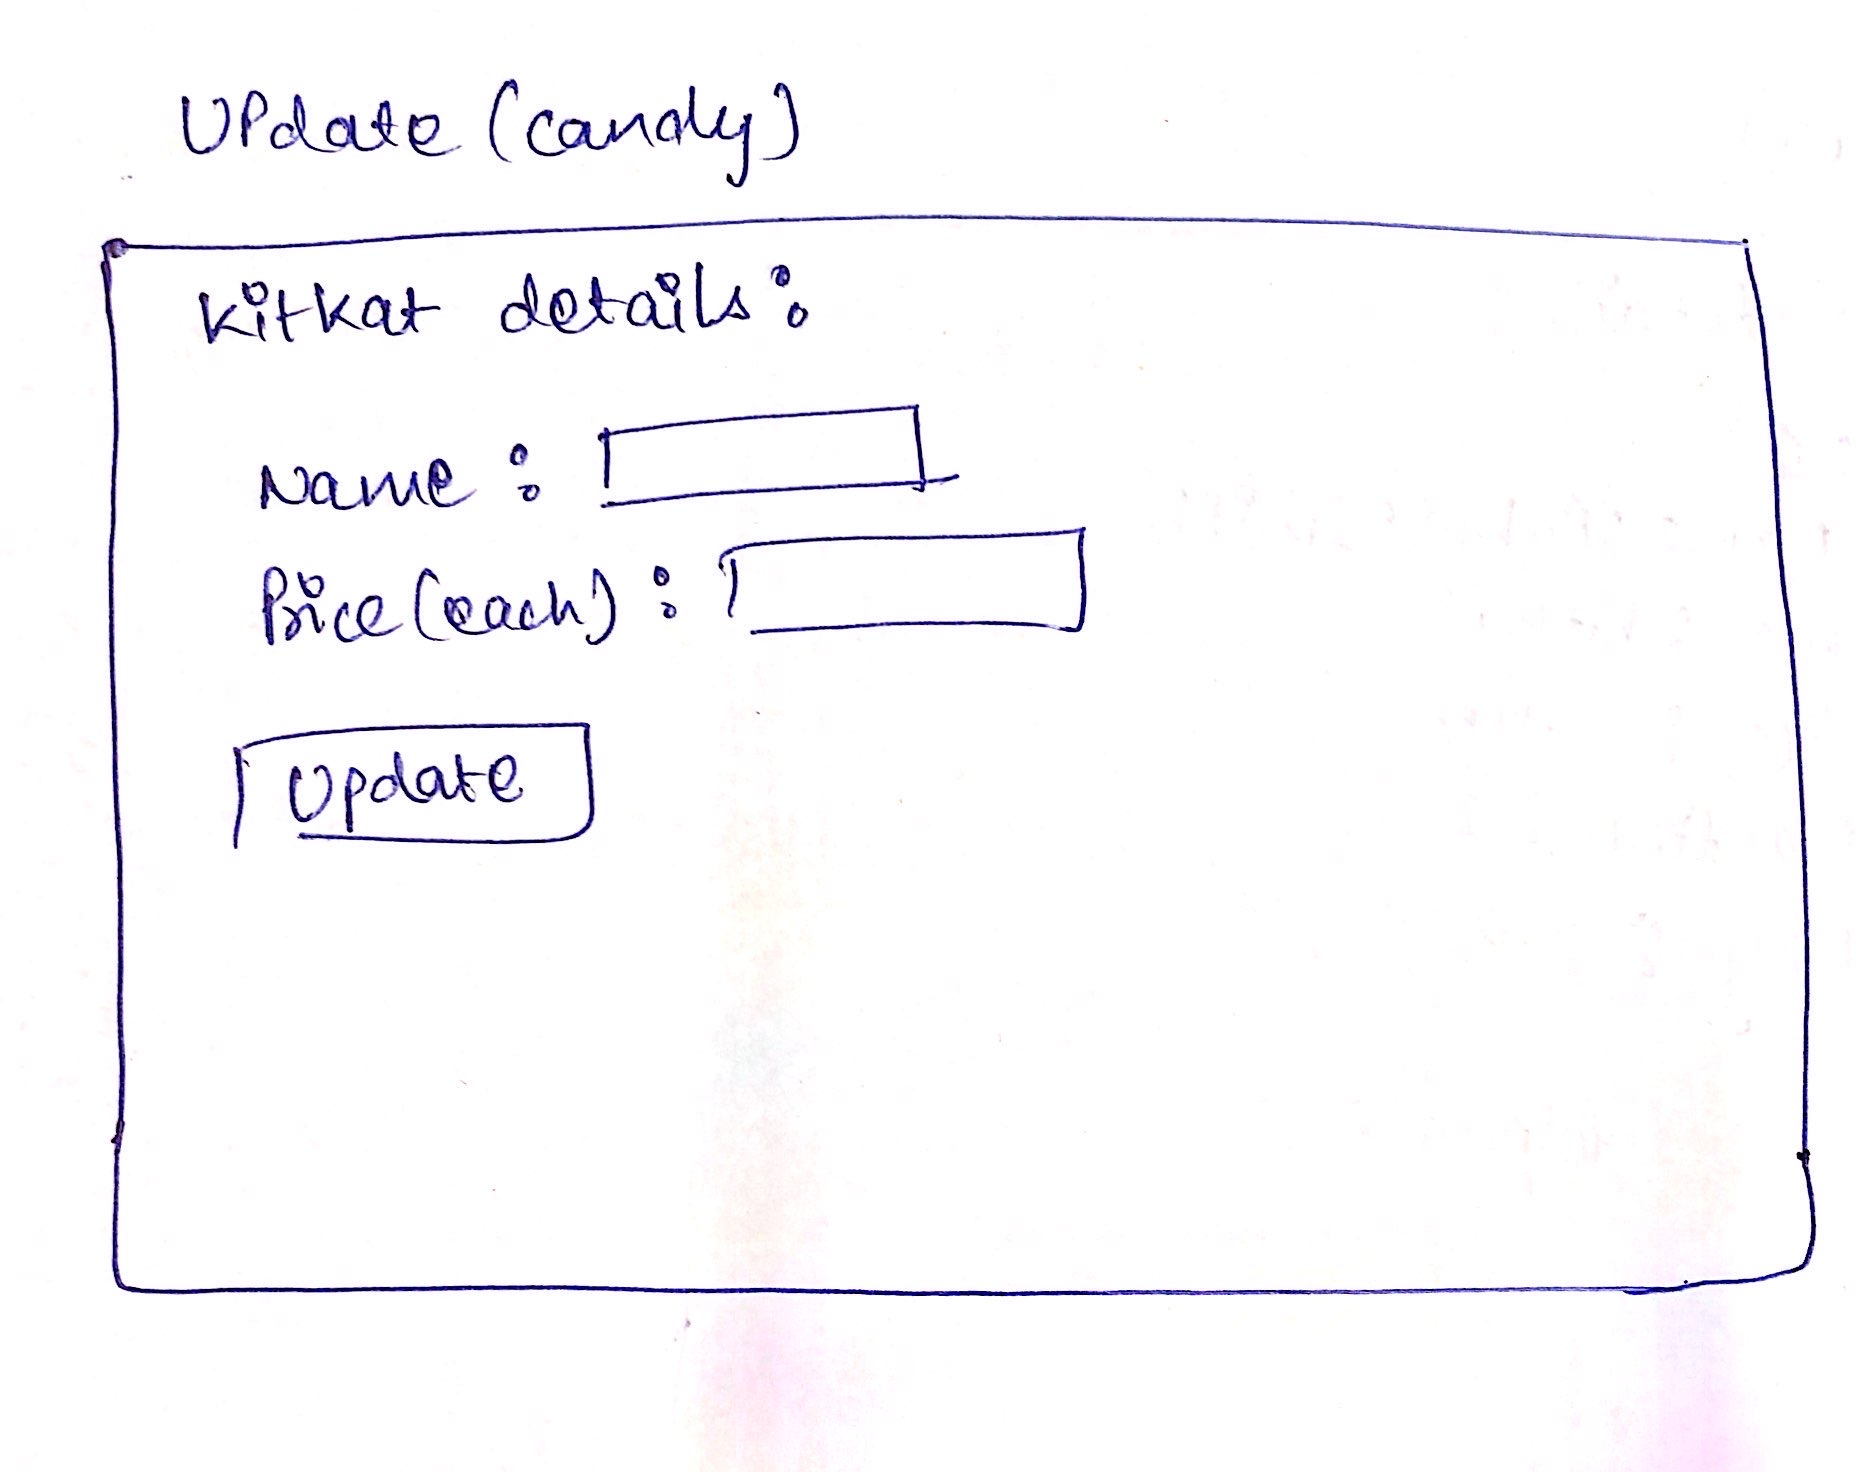 UPdate (candy)
Kitkat details:
Name :
Price (each) :
Update